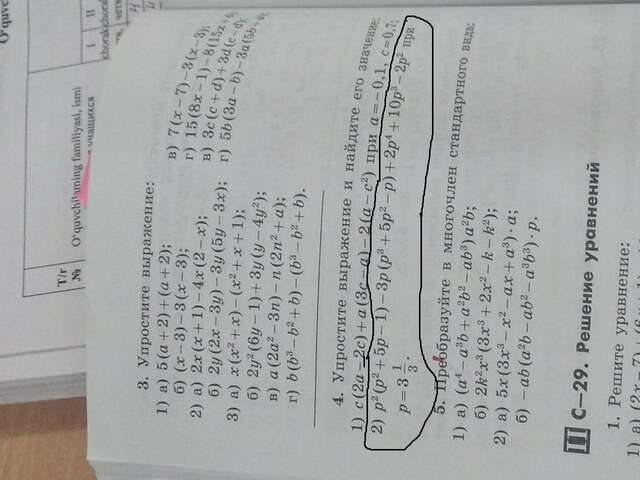 O'quvchi
I
II
chorak
chorak
T/r
№
O'quvchilarning familiyasi, ismi
учащихся
3. Упростите выражение:
1) а) 5(a+2)+(a+2);
б) (x−3)−3(x−3);
в) 7(x−7)−3(x−3);
г) 15(8x−1)−8(15x
2) а) 2x(x+1)−4x(2−x);
б) 2y(2x−3y)−3y(5y−3x);
в) 3c(c+d)+3d(c−d);
г) 5b(3a−b)−3a(5b+
3) а) x(x²+x)−(x²+x+1);
б) 2y²(6y−1)+3y(y−4y²);
в) a(2a²−3n)−n(2n²+a);
г) b(b³−b²+b)−(b³−b²+b).
4. Упростите выражение и найдите его значение:
1) c(2a−2c)+a(3c−a)−2(a−c²) при a=−0,1, c=0,7;
2) p²(p²+5p−1)−3p(p³+5p²−p)+2p⁴+10p³−2p² при
p=3 1/3.
5. Преобразуйте в многочлен стандартного вида:
1) а) (a⁴−a³b+a²b²−ab³)a²b;
б) 2k²x³(3x³+2x²−k−k²);
2) а) 5x(3x³−x²−ax+a³)·a;
б) −ab(a²b−ab²−a³b³)·p.
III С–29. Решение уравнений
1. Решите уравнение:
1) а)